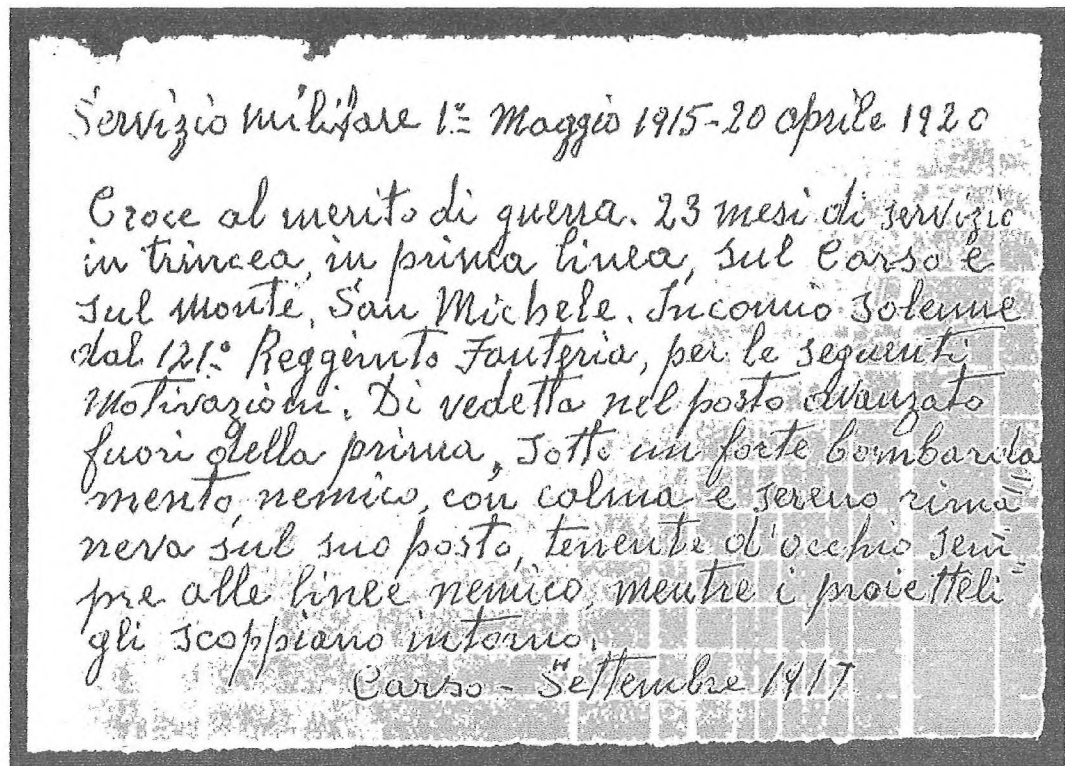 Servizio militare 1º Maggio 1915-20 aprile 1920
Croce al merito di guerra. 23 mesi di servizio
in trincea, in prima linea, sul Carso e
sul monte, San Michele. Incomio Solenne
dal 121º Reggimto Fanteria, per le seguenti
Motivazioni. Di vedetta nel posto avanzato
fuori della prima, sotto un forte bombarda
mento, nemico, con calma e sereno rima=
neva sul suo posto, tenente d'occhio sem
pre alle linee nemico, mentre i proietteli=
gli scoppiano intorno.
Carso - Settembre 1917